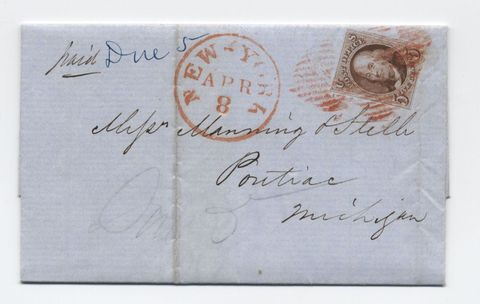 paid Due 5
NEW-YORK
APR
8
POST OFFICE
Messrs Manning & Stelle
Pontiac
Michigan